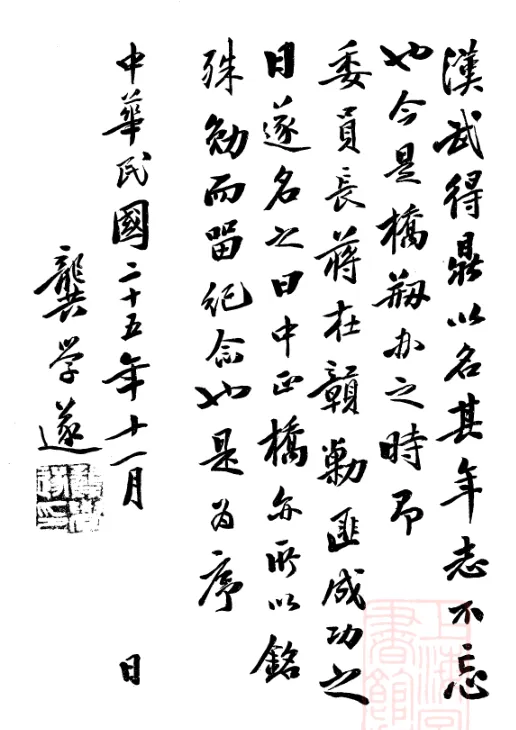 漢武得鼎以名其年志不忘
也今是橋剏办之時即
委員長蔣在贛勦匪成功之
日遂名之曰中正橋亦所以銘
殊勛而畱紀念也是为序
中華民國二十五年十一月 日
龔学遂